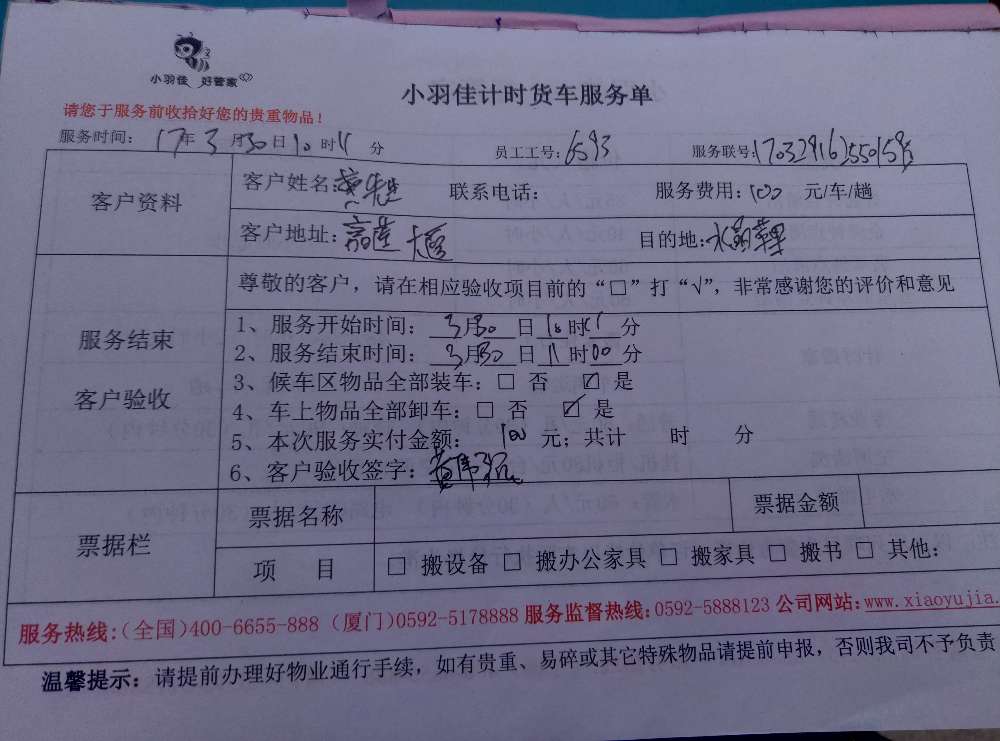 小羽佳 好管家
小羽佳计时货车服务单
请您于服务前收拾好您的贵重物品！
服务时间：17年3月30日10时11分 员工工号：6593 服务联号：
客户资料
客户姓名：黄先生 联系电话： 服务费用：100 元/车/趟
客户地址：嘉莲大厦 目的地：水晶苹果
服务结束
客户验收
尊敬的客户，请在相应验收项目前的“□”打“√”，非常感谢您的评价和意见
1、服务开始时间：3月30日10时11分
2、服务结束时间：3月30日11时00分
3、候车区物品全部装车：□ 否 ☑ 是
4、车上物品全部卸车：□ 否 ☑ 是
5、本次服务实付金额：100元；共计 时 分
6、客户验收签字：黄
票据栏
票据名称 票据金额
项 目 □ 搬设备 □ 搬办公家具 □ 搬家具 □ 搬书 □ 其他：
服务热线：（全国）400-6655-888（厦门）0592-5178888 服务监督热线：0592-5888123 公司网站：www.xiaoyujia.
温馨提示：请提前办理好物业通行手续，如有贵重、易碎或其它特殊物品请提前申报，否则我司不予负责